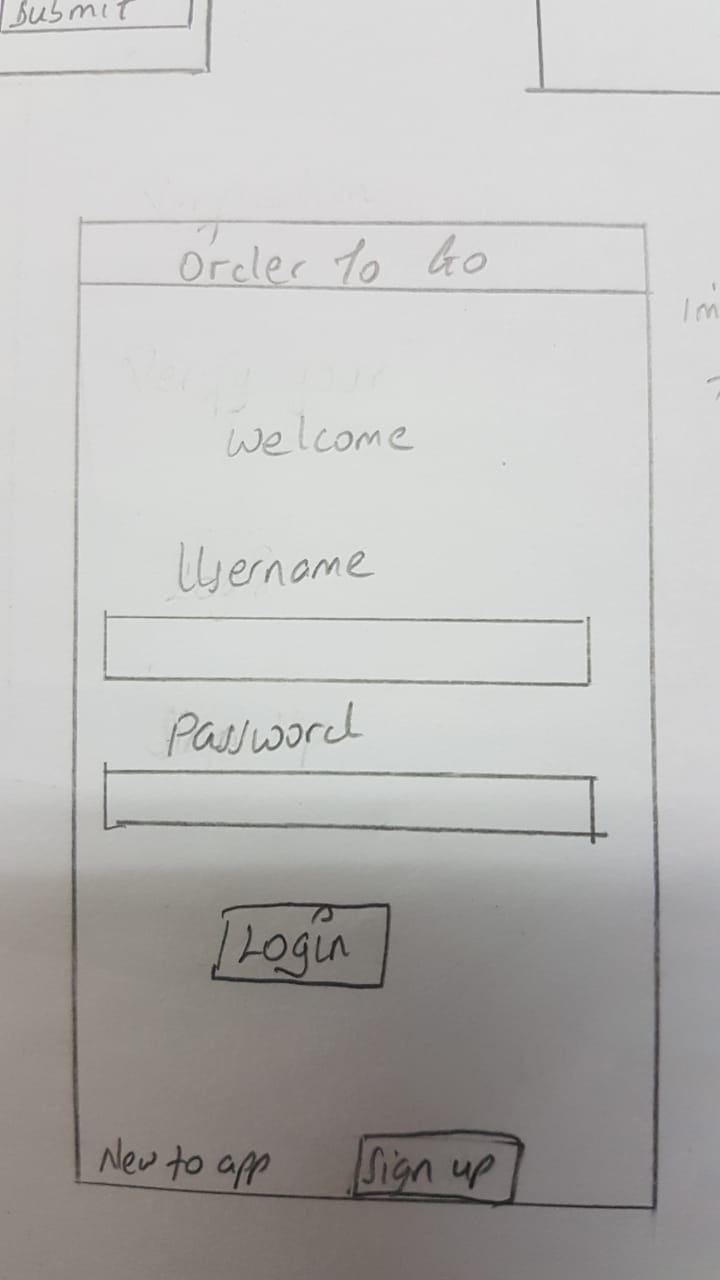 Submit
Order To Go
Welcome
Username
Password
Login
New to app
Sign up